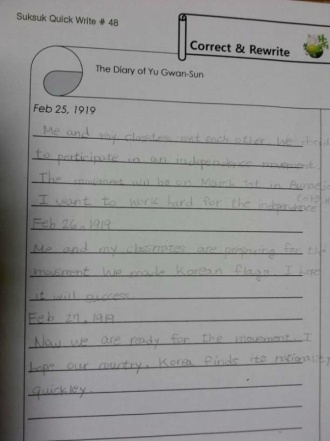 Suksuk Quick Write # 48
Correct & Rewrite
The Diary of Yu Gwan-Sun
Feb 25, 1919
Me and my met each other. We
to participate in an independence movement.
The movement will be on March 1st in
I want to work hard for the independence
Feb 26, 1919
Me and my classmates are preparing for the
movement. We made Korean flags. I hope
it will success.
Feb 27, 1919
Now we are ready for the movement. I
hope our country, Korea finds its
quickley.